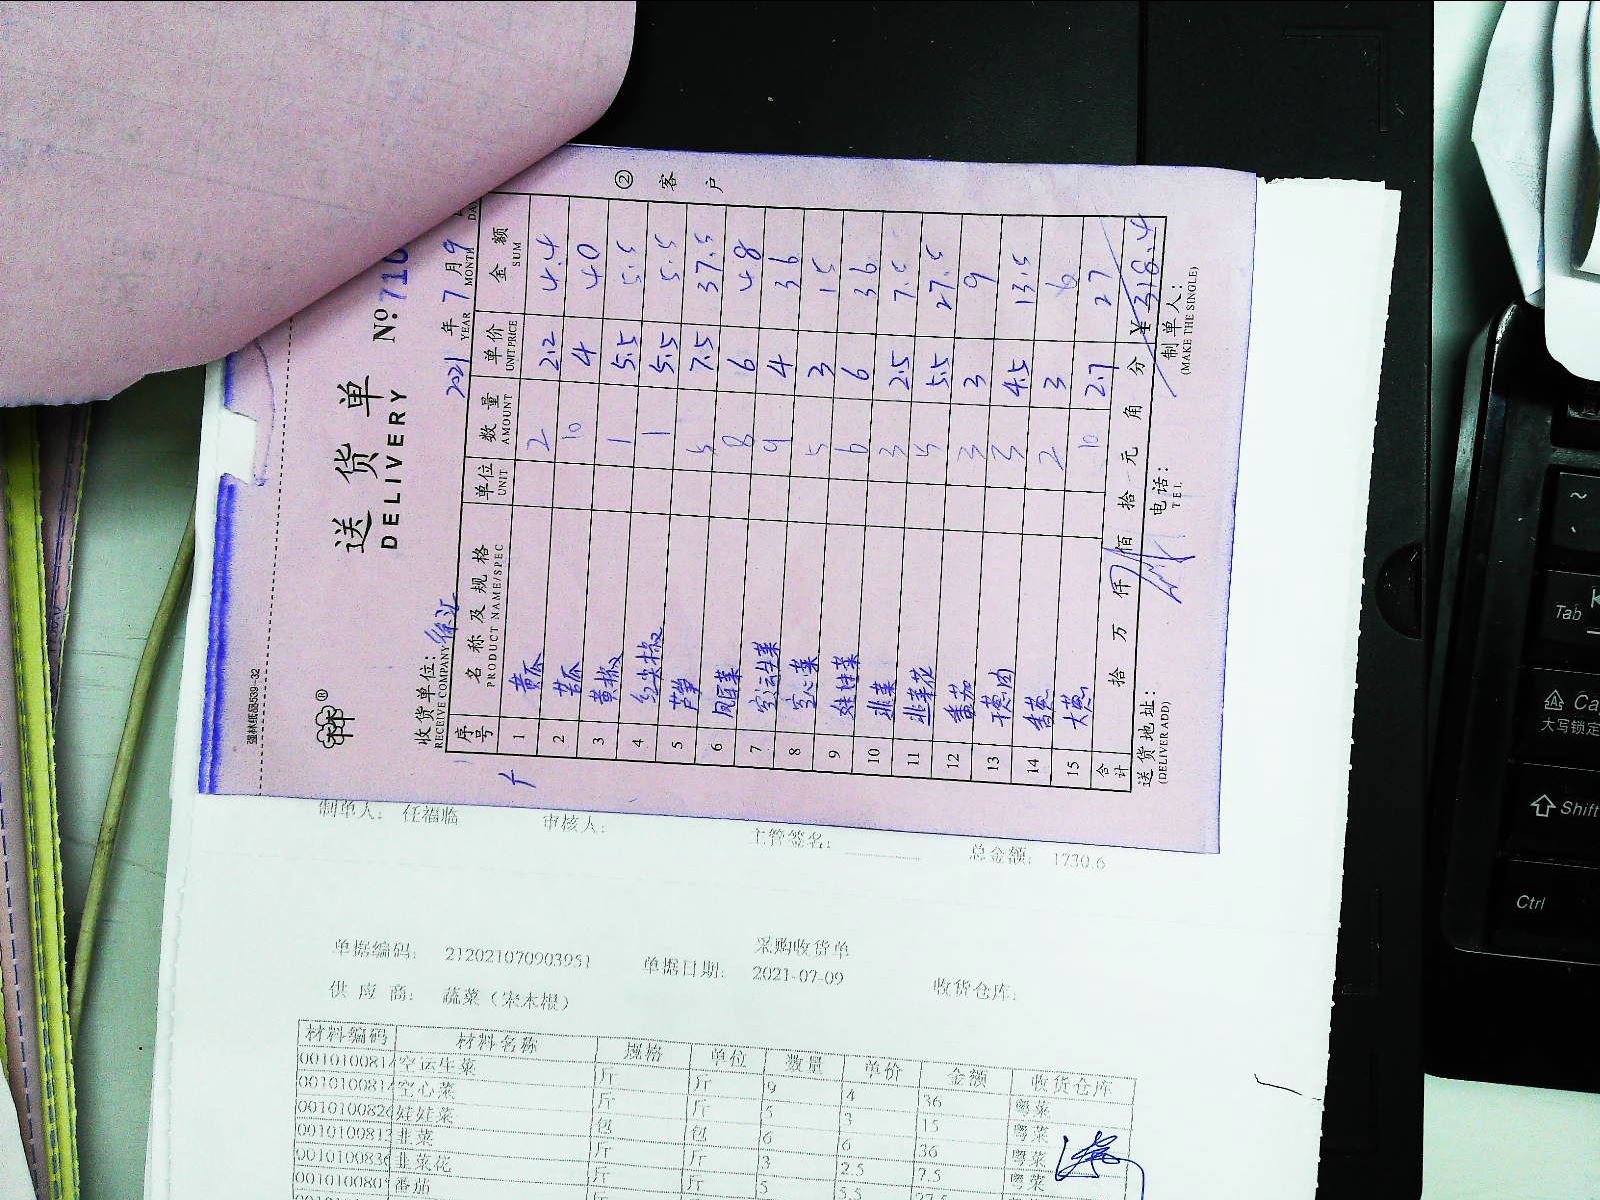 强林纸品539--32
送货单
DELIVERY
№ 710
② 客户
2021 年 7 月 9
YEAR MONTH DA
收货单位: 徐汇
RECEIVE COMPANY
序号 名称及规格 单位 数量 单价 金额
PRODUCT NAME/SPEC UNIT AMOUNT UNIT PRICE SUM
1 黄瓜 2 2.2 4.4
2 苦瓜 10 4 40
3 黄椒 1 5.5 5.5
4 红尖椒 1 5.5 5.5
5 芦笋 5 7.5 37.5
6 凤尾菜 8 6 48
7 空运生菜 9 4 36
8 空心菜 5 3 15
9 娃娃菜 6 6 36
10 韭菜 3 2.5 7.5
11 韭菜花 5 5.5 27.5
12 番茄 3 3 9
13 干葱肉 3 4.5 13.5
14 香葱 2 3 6
15 大葱 10 2.7 27
合计 拾 万 仟 佰 拾 元 角 分 ¥ 318.4
送货地址: 电话: 制单人:
(DELIVER ADD) TEL (MAKE THE SINGLE)
制单人: 任福临 审核人: 主管签名: 总金额: 1730.6
采购收货单
单据编码: 212021070903951 单据日期: 2021-07-09 收货仓库:
供应商: 蔬菜（宋木根）
材料编码 材料名称 规格 单位 数量 单价 金额 收货仓库
001010081 空运生菜 斤 斤 9 4 36 粤菜
001010081 空心菜 斤 斤 5 3 15 粤菜
001010082 娃娃菜 包 包 6 6 36 粤菜
001010081 韭菜 斤 斤 3 2.5 7.5 粤菜
001010083 韭菜花 斤 斤 5 5.5 27.5
001010080 番茄
~
Tab
Ca
大写锁定
Shift
Ctrl